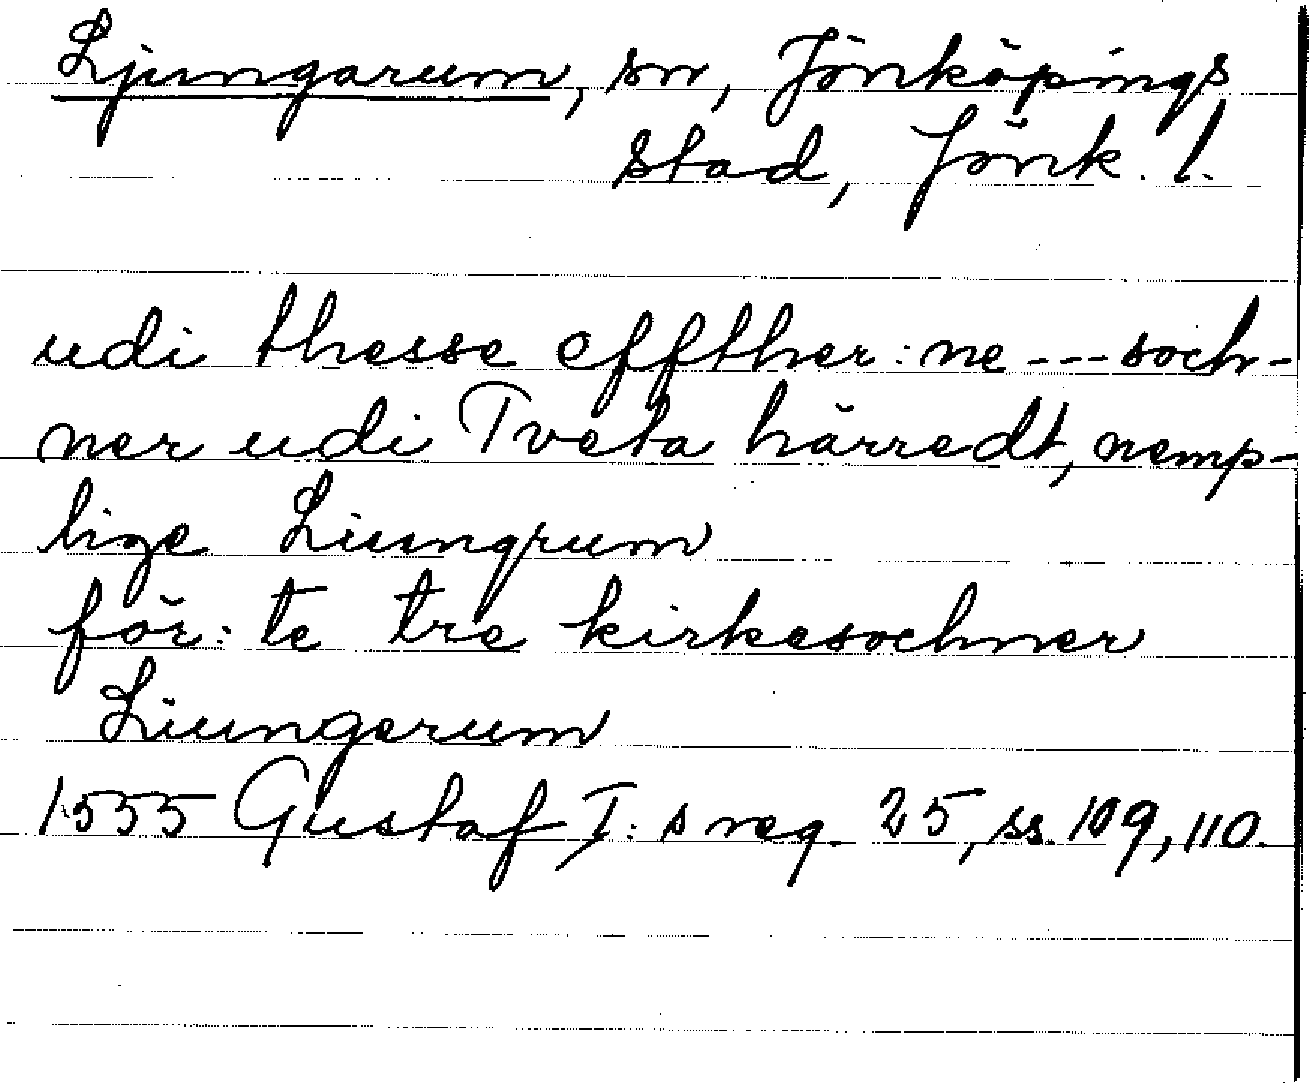 Ljungarum, sn, Jönköpings
stad, Jönk. l.
udi thesse effther:ne --- soch-
ner udi Tveta härredt, nemp-
lige Liungrum
för:te tre kirkesochner
Liungerum
1555 Gustaf I:s reg. 25, ss. 109, 110.